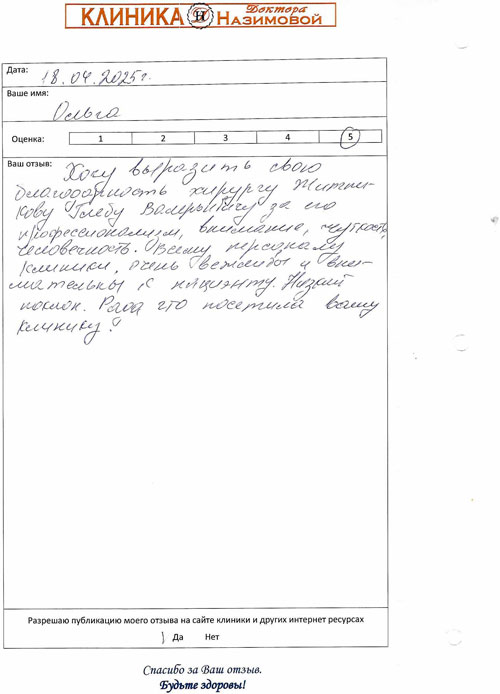 КЛИНИКА Н Доктора Назимовой
Дата: 18.04.2025г.
Ваше имя:
Ольга
Оценка: 1 2 3 4 5
Ваш отзыв: Хочу выразить свою
благодарность хирургу Житни-
кову Глебу Валерьевичу за его
профессионализм, внимание, чуткость,
человечность. Всему персоналу
клиники, очень вежливы и вни-
мательны к пациенту. Низкий
поклон. Рада что посетила вашу
клинику!
Разрешаю публикацию моего отзыва на сайте клиники и других интернет ресурсах
Да Нет
Спасибо за Ваш отзыв.
Будьте здоровы!